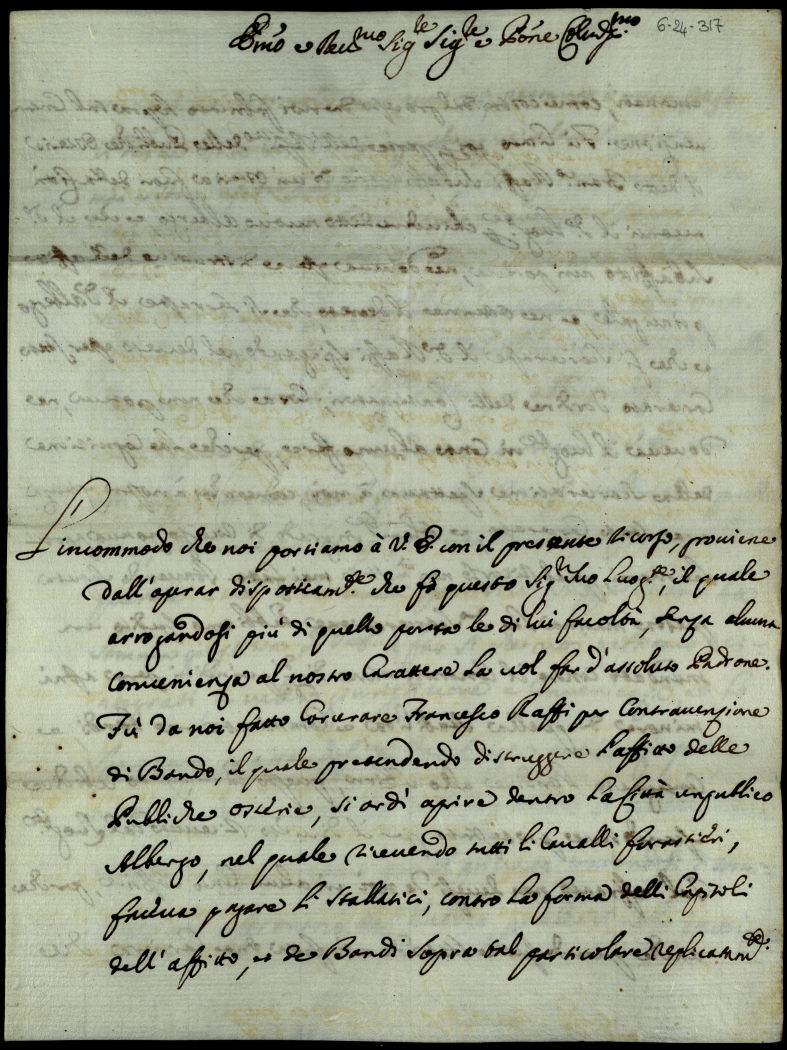 Em̃o e Reu.mo Sig.re Sig.re e Pñe Colmo 6-24-317
L'incommodo che noi portiamo à V. E. con il presente ricorso, prouiene
dall'operar disposticam.te che fà questo Sig.r suo Luog.te, il quale
arrogandosi più di quello porta le di lui facoltà, senza alcuna
conuenienza al nostro Carattere La uol far d'assoluto Padrone.
Fù da noi fatto Carcerare Francesco Raffi per Contrauenzione
di Bando, il quale pretendendo distruggere L'affitto delle
Publiche osterie, si ardì aprire dentro La Città un publico
Albergo, nel quale riceuendo tutti li Caualli forastieri,
faceua pagare li stallatici, contro La forma delli Capitoli
dell'affitto, e de Bandi sopra tal particolare replicatam.te